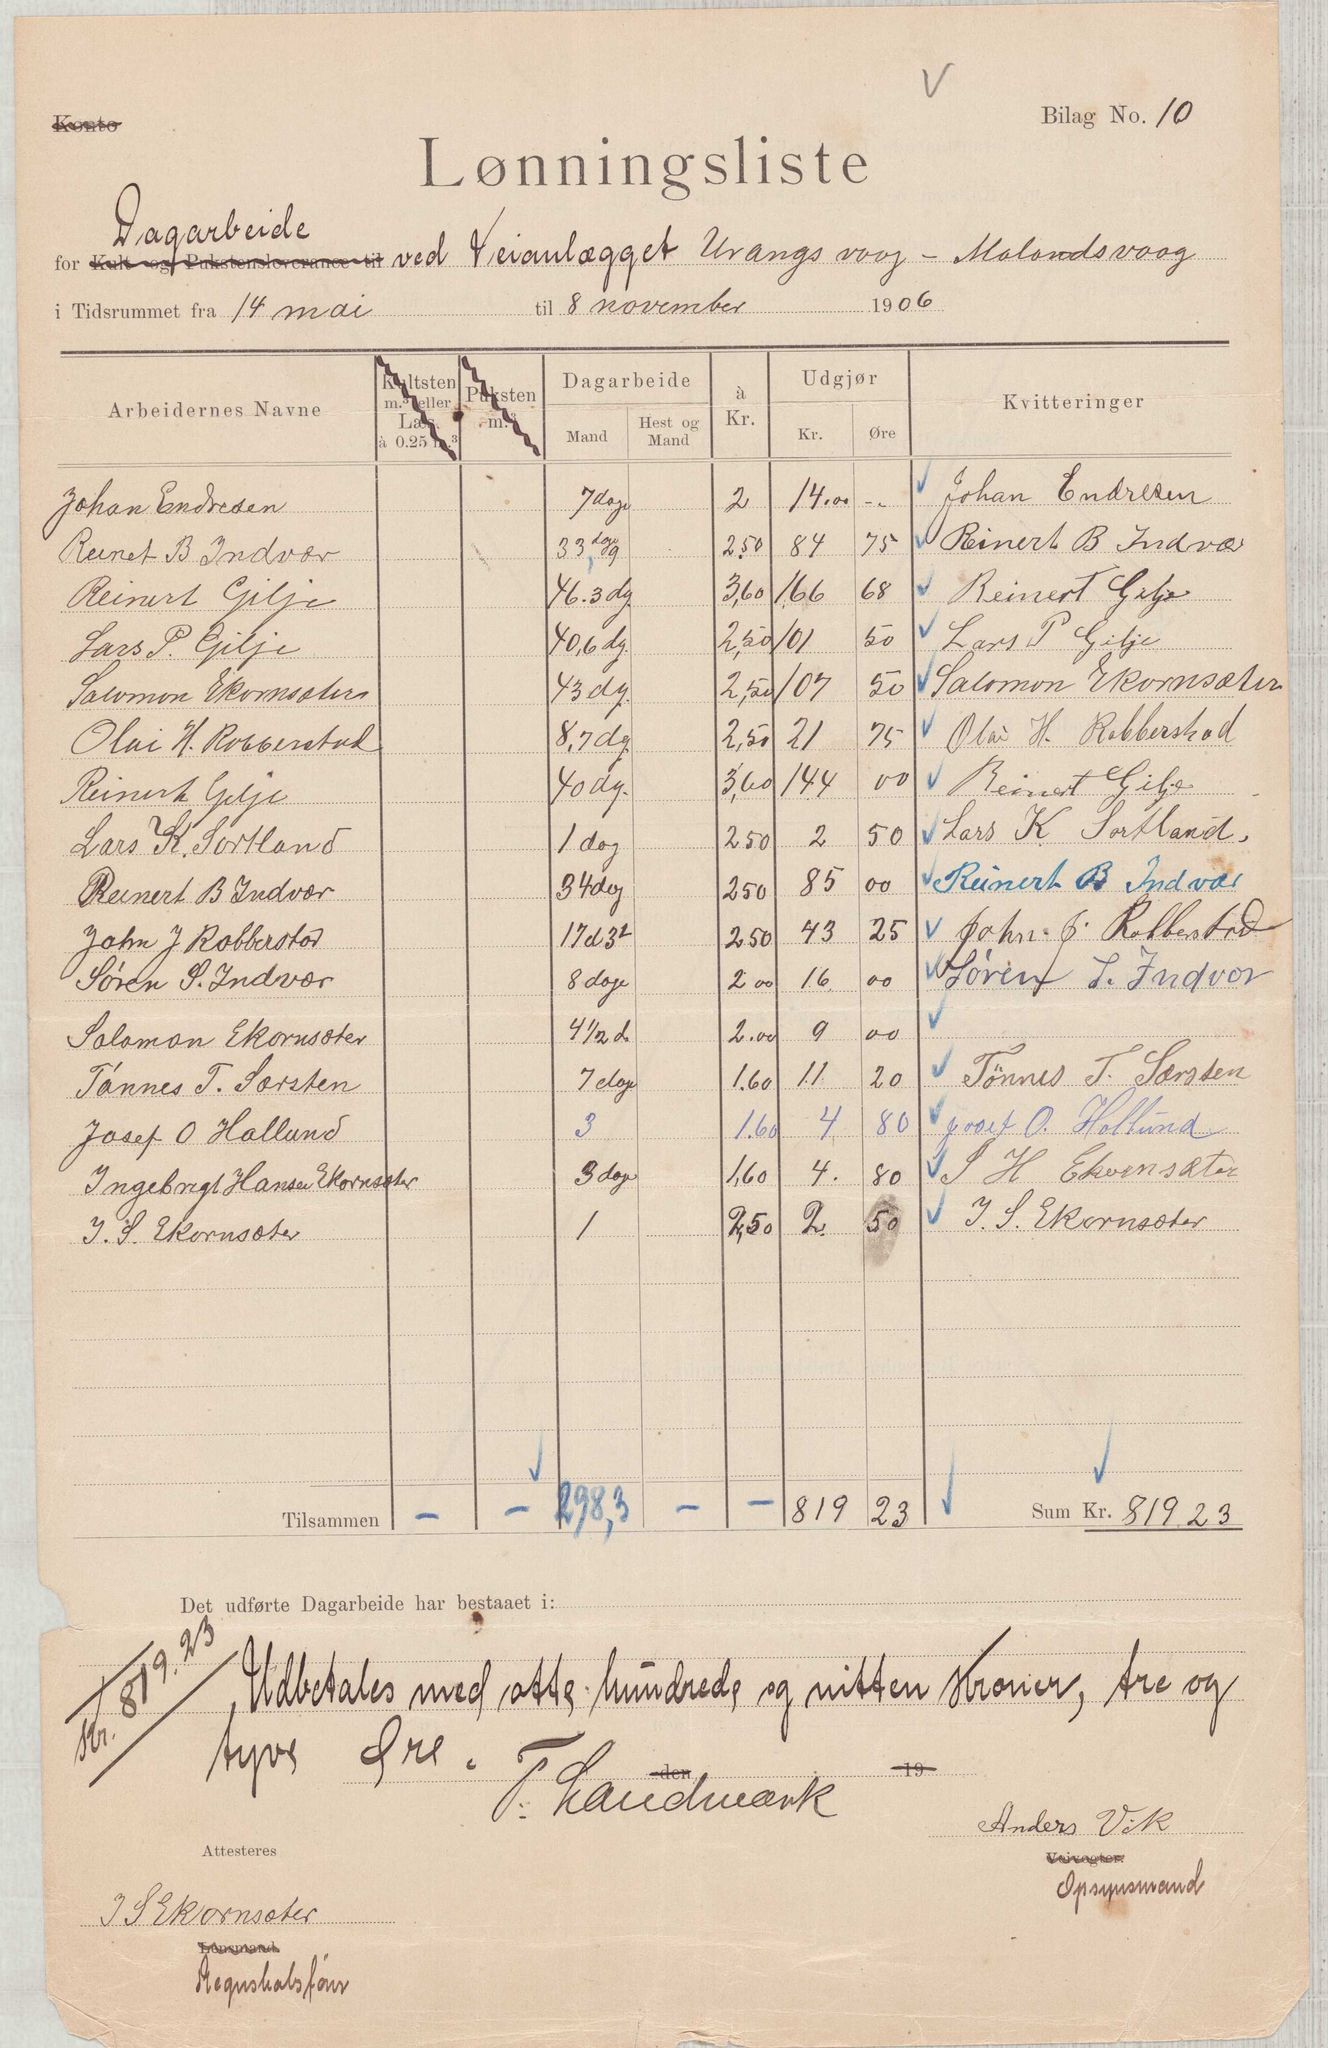 Konto
Bilag No. 10
Lønningsliste
Dagarbeide
for Kult- og Pukstensleverance til ved Veianlægget Urangsvaag - Molandsvaag
i Tidsrummet fra 14 mai til 8 november 1906
Arbeidernes Navne | Kultsten m.³ eller Læs à 0.25 m.³ | Puksten m.³ | Dagarbeide Mand | Hest og Mand | à Kr. | Udgjør Kr. | Øre | Kvitteringer
Johan Endresen 7 dage 2 14.00 -- Johan Endresen
Reinet B Indvær 33,9 dag 2.50 84 75 Reinert B Indvær
Reinert Gilje 46.3 dg. 3,60 166 68 Reinert Gilje
Lars P. Gilje 40,6 dg. 2,50 101 50 Lars P Gilje
Salomon Ekornsæter 43 dg. 2,50 107 50 Salomon Ekornsæter
Olai H. Robberstad 8,7 dg. 2,50 21 75 Olai H. Robberstad
Reinert Gilje 40 dg. 3,60 144 00 Reinert Gilje
Lars K. Sortland 1 dag 2 50 2 50 Lars K Sortland.
Reinert B Indvær 34 dag 2 50 85 00 Reinert B Indvær
John J Robberstad 17 d 3t 2 50 43 25 John J. Robberstad
Søren S. Indvær 8 dage 2 00 16 00 Søren S. Indvær
Salomon Ekornsæter 4 1/2 d. 2.00 9 00
Tönnes T. Sørsten 7 dage 1.60 11 20 Tönnes T. Sørsten
Josef O Hollund 3 1.60 4 80 Josef O. Hollund
Ingebrigt Hansen Ekornsæter 3 dage 1,60 4. 80 I H Ekornsæter
I. S. Ekornsæter 1 2,50 2. 50 I. S. Ekornsæter
Tilsammen - - 298,3 - - 819 23 Sum Kr. 819 23
Det udførte Dagarbeide har bestaaet i:
Kr. 819.23
Udbetales med otte hundrede og nitten Kroner, tre og
tyve Øre.
den 19
T. Landmark
Anders Vik
Veivogter.
Opsynsmand
Attesteres
I S Ekornsæter
Lensmand.
Regnskabsfører